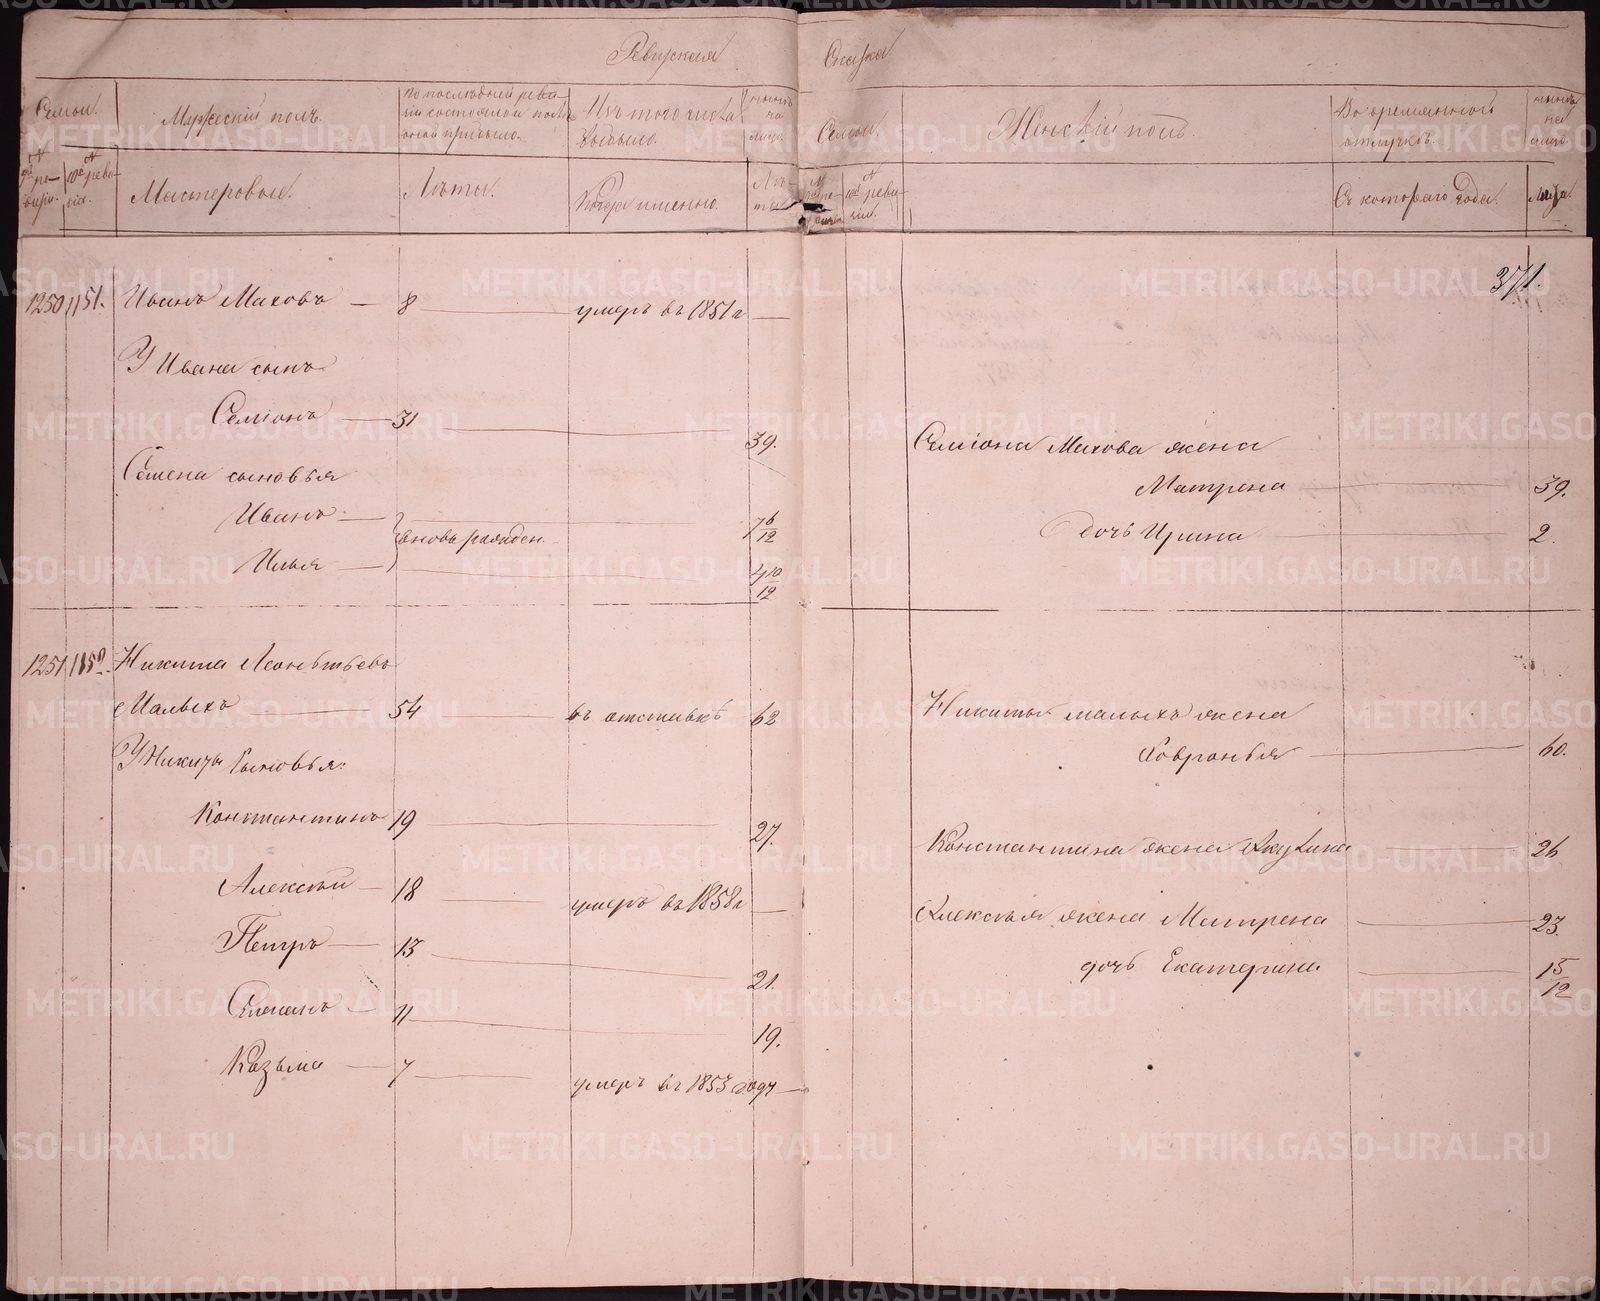 Ревизская Сказка
Семьи. Мужескій полъ. По последней ревизіи состояло и после оной прибыло. Изъ того числа выбыло. ныне на лицо. Семьи. Женскій полъ. Во временной отлучкѣ. ныне на лицо.
Мастеровые. Лѣты. Когда именно. Лѣты. Съ котораго года. Лѣта.
371.
1250 1151. Иванъ Маховъ — 8 умеръ въ 1851 г —
У Ивана сынъ
Семіонъ — 31 39.
Семіона Махова жена
Семена сыновья
Матрена 39.
Иванъ — вновь рожден. 7 6/12
дочь Ирина 2.
Илья — 4 10/12
1251 1152. Никита Леонтьевъ
Малыхъ 54 въ отставкѣ 62
Никиты малыхъ жена
У Никиты Сыновья:
Говронья 60.
Константинъ 19 27.
Константина жена Акулина 26
Алексѣй — 18 умеръ въ 1858 г —
Алексѣя жена Матрена 23.
Петръ — 13 21.
дочь Екатерина 15/12
Степанъ — 11 19.
Козьма — 7 умеръ въ 1853 году —
METRIKI.GASO-URAL.RU